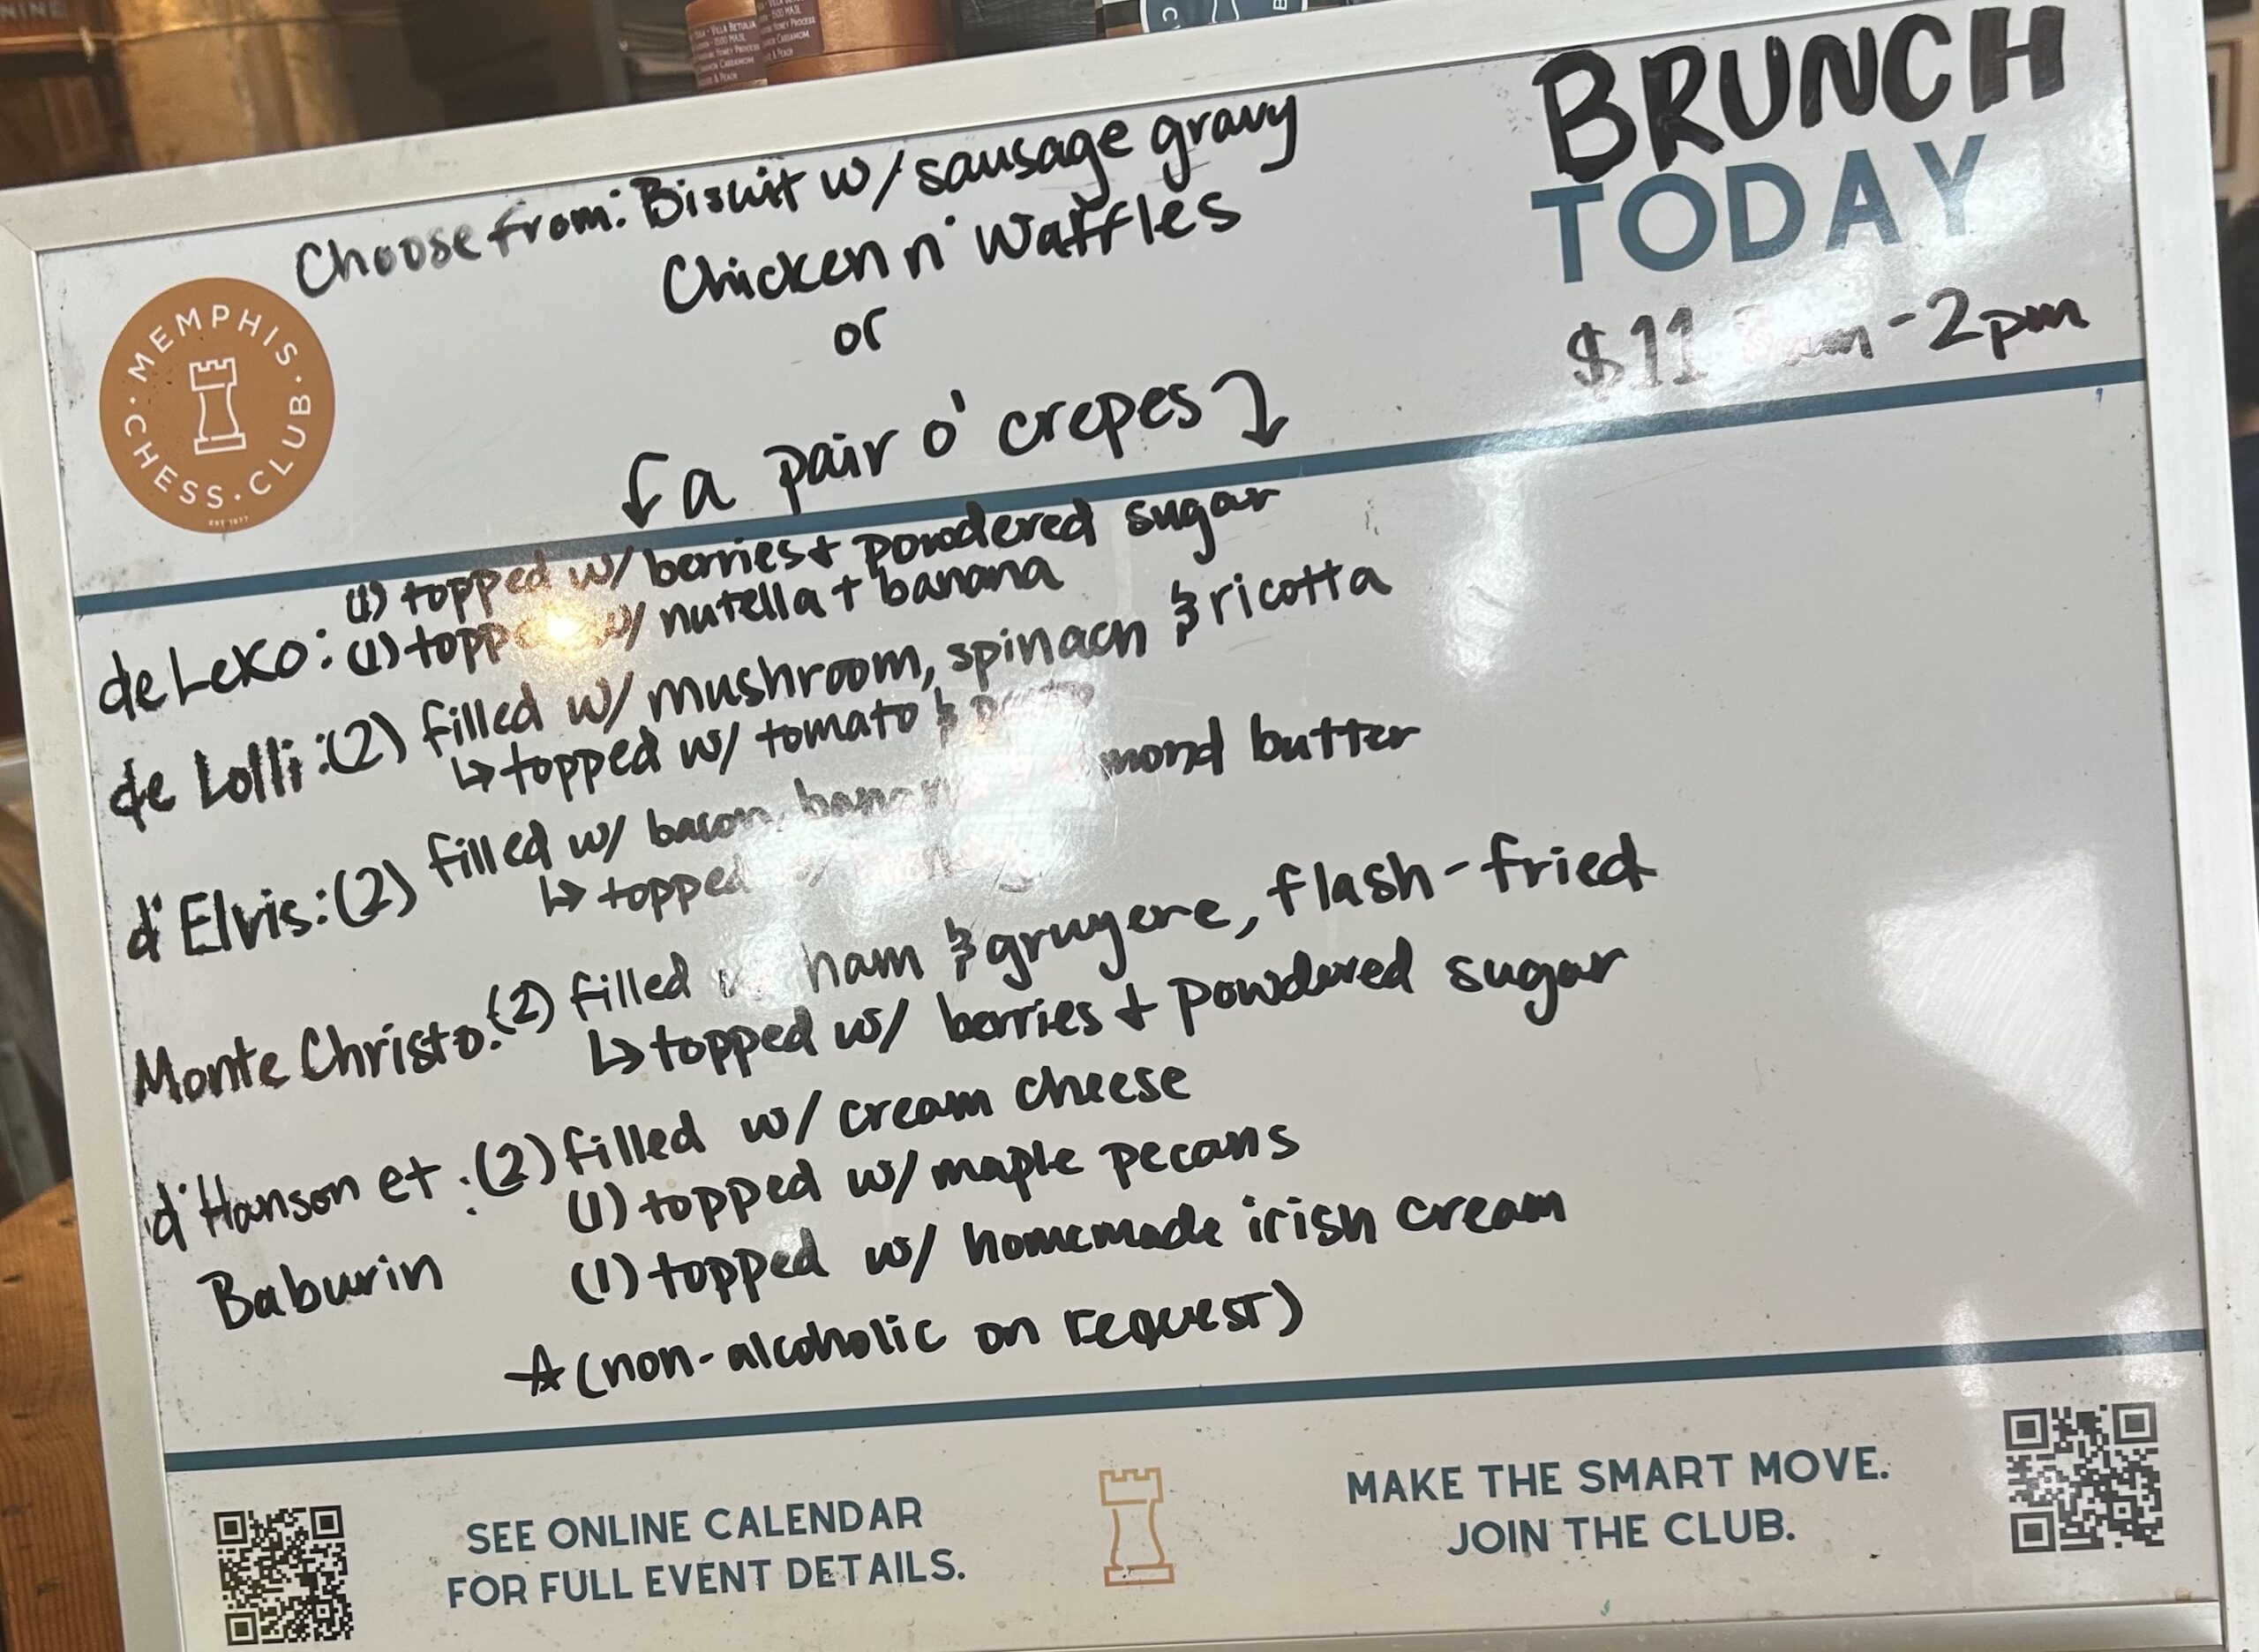 NINE
BRUNCH
TODAY
$11 am-2pm
MEMPHIS
CHESS · CLUB
EST 1877
Choose from: Biscuit w/ sausage gravy
Chicken n' Waffles
or
a pair o' crepes
(1) topped w/ berries + powdered sugar
de Leko: (1) topped w/ nutella + banana
de Lolli: (2) filled w/ mushroom, spinach & ricotta
↳ topped w/ tomato & pesto
d'Elvis: (2) filled w/ bacon, banana & almond butter
↳ topped w/
Monte Christo: (2) filled w/ ham & gruyere, flash-fried
↳ topped w/ berries + powdered sugar
d'Hanson et: (2) filled w/ cream cheese
(1) topped w/ maple pecans
Baburin (1) topped w/ homemade irish cream
☆ (non-alcoholic on request)
SEE ONLINE CALENDAR
FOR FULL EVENT DETAILS.
MAKE THE SMART MOVE.
JOIN THE CLUB.